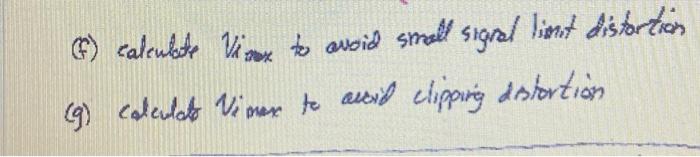 (f) calculate Vimax to avoid small signal limit distortion
(g) calculate Vimax to avoid clipping distortion